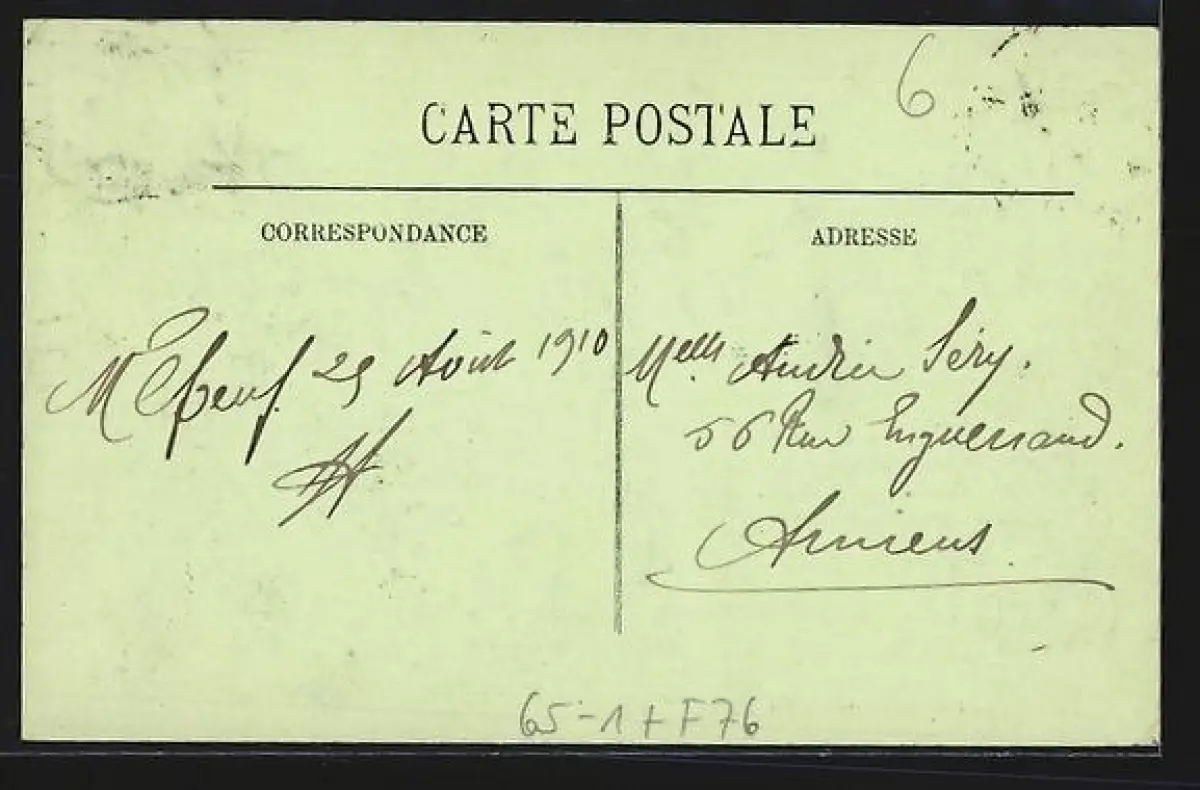 6
CARTE POSTALE
CORRESPONDANCE
ADRESSE
Elbeuf 29 Août 1910
Melle Séry.
56 Rue Enguerrand.
Amiens.
65-1+F76